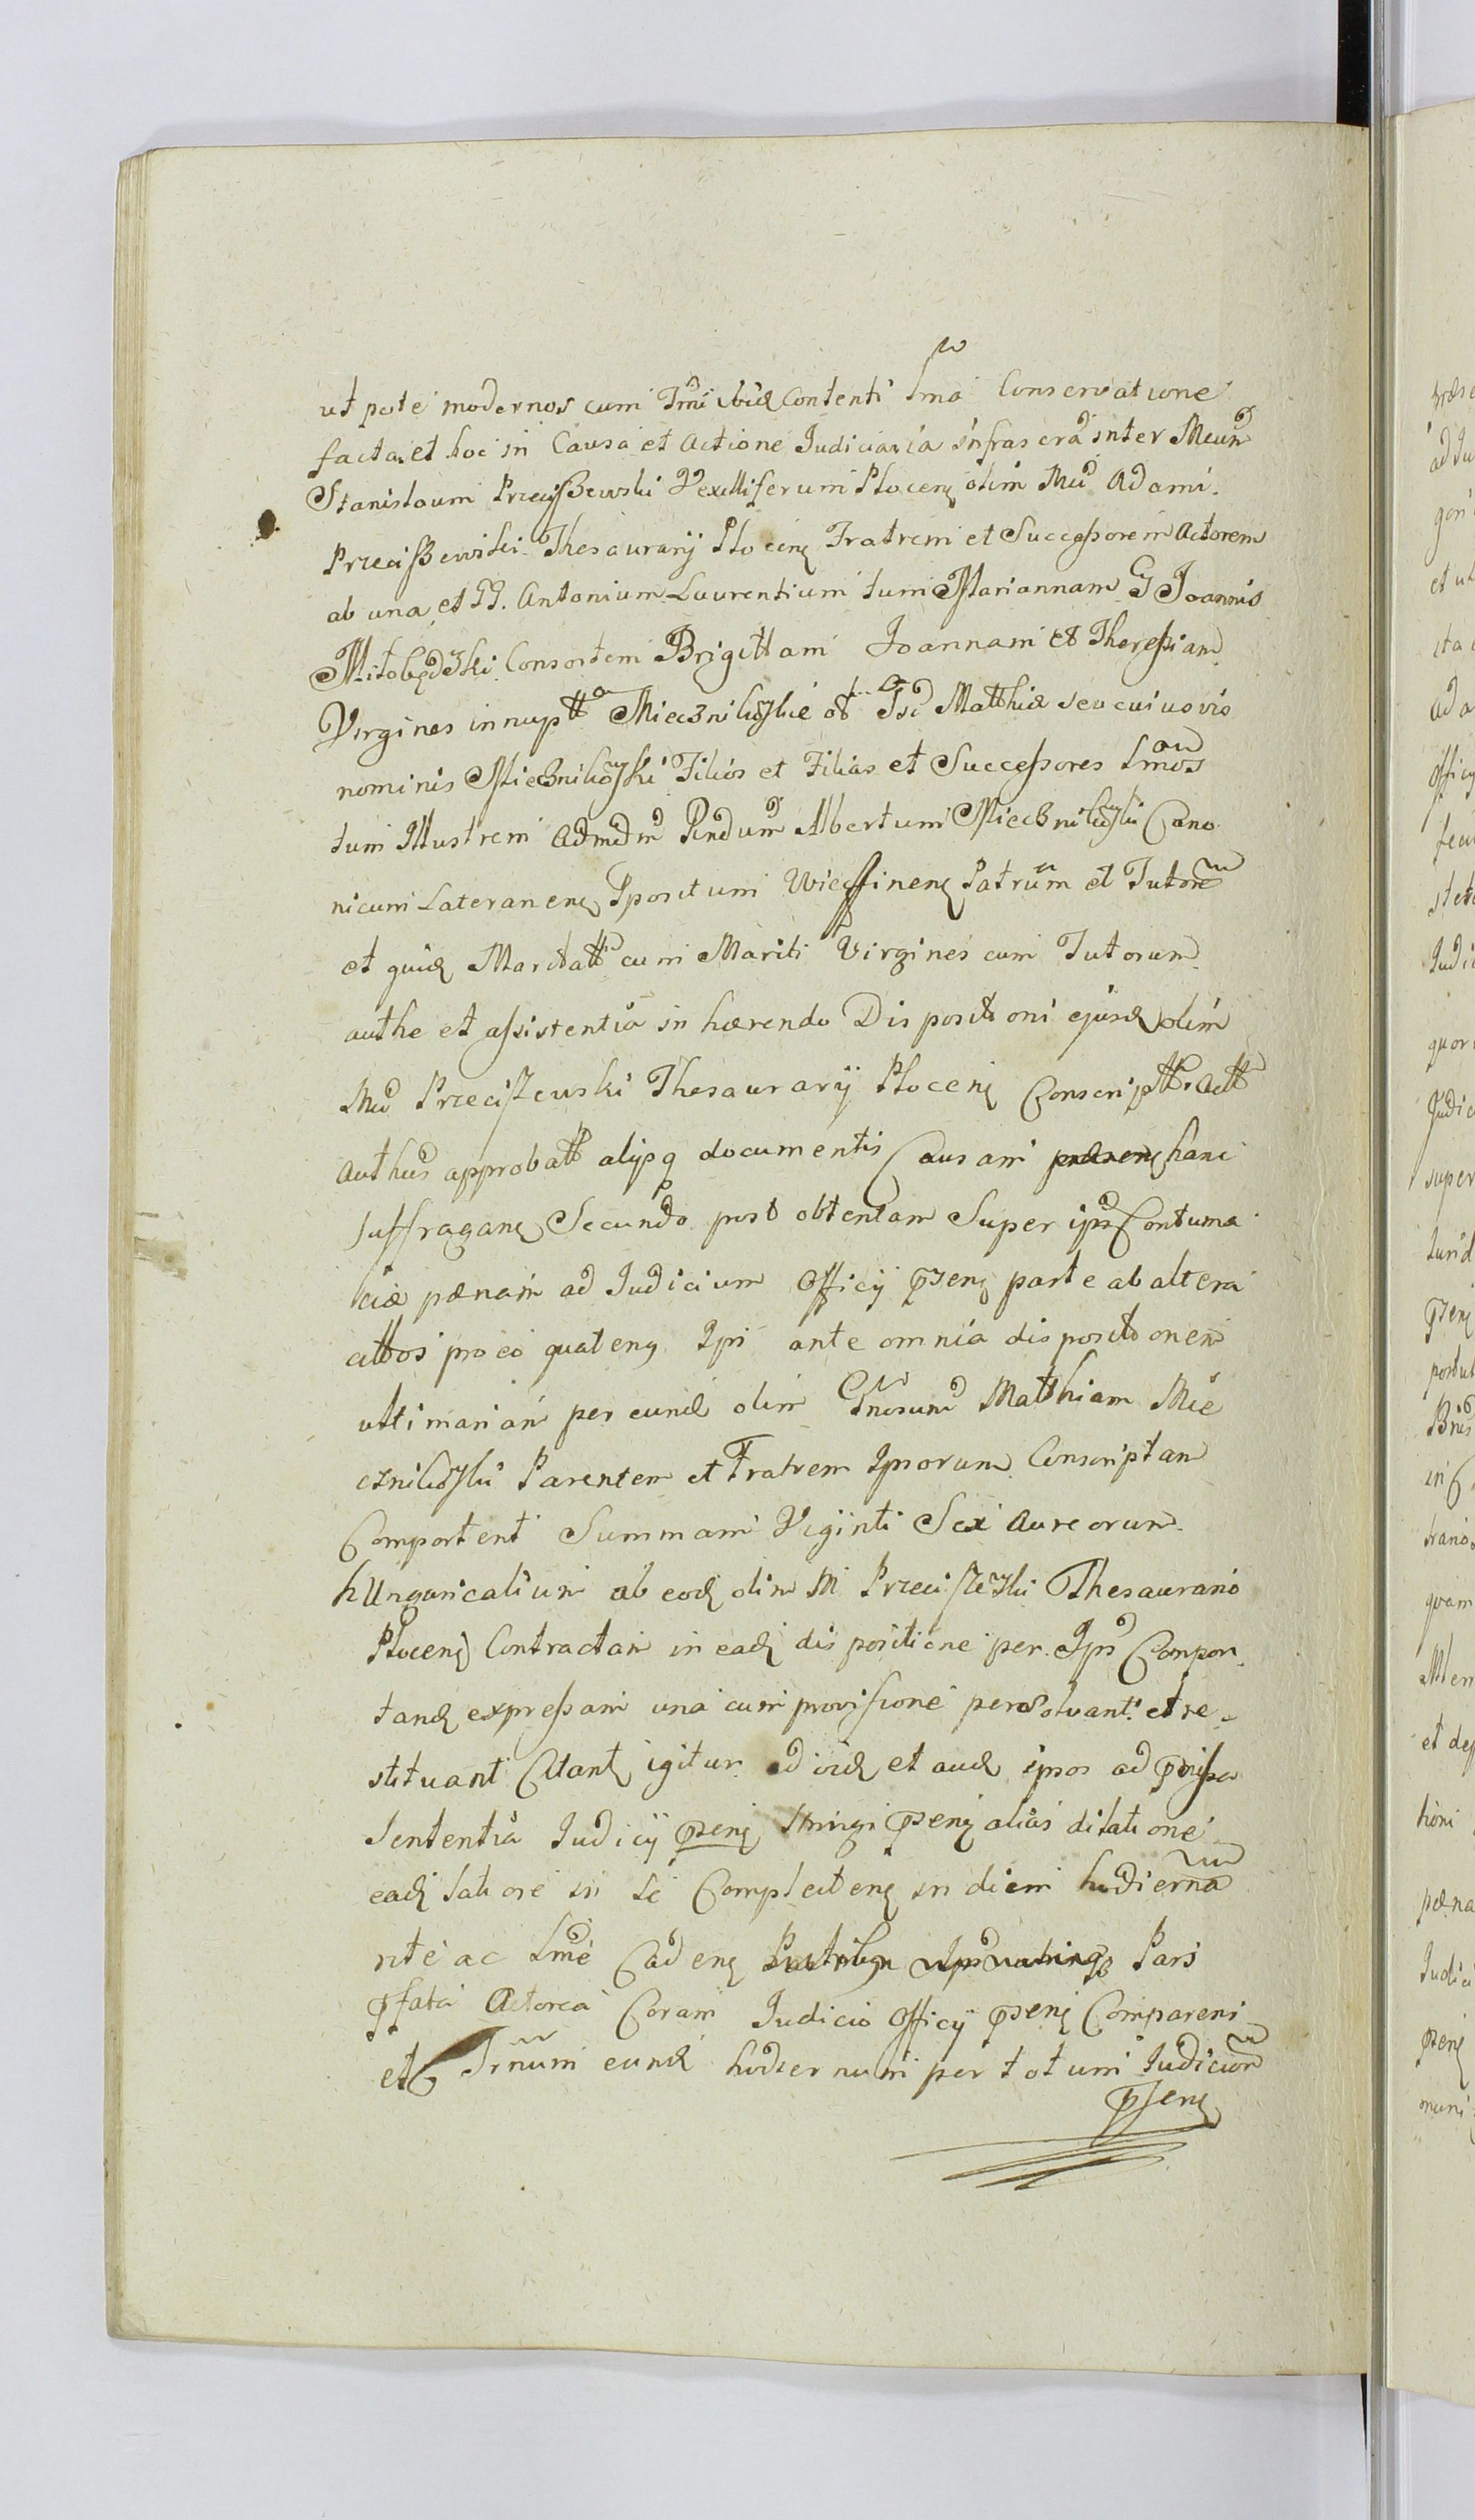 ut pote modernos cum Tmi ibid Contenti Lma Conservatione
facta et hoc in Causa et Actione Judiciaria infrascra inter Mcum
Stanislaum Przeciszewski Vexilliferum Plocen olim Mci Adami
Przeciszewski Thesaurarij Plocen Fratrem et Successorem Actorem
ab una et GG. Antonium Laurentium tum Mariannam G Joannis
Mitobędzki Consortem Brigittam Joannam et Theressiam
Virgines innuptt Miecznikoskie olim Gsi Matthiæ seu cuiusvis
nominis Miecznikoski Filios et Filias et Successores Lmos
tum Illustrem Admdm Rndum Albertum Miecznikoski Cano
nicum Lateranen Ppositum Patrum et Tutorem
et quid Maritatt cum Mariti Virgines cum Tutorum
authe et assistentia in hærendo Dispositioni ejusd olim
Mci Przeciszewski Thesaurarij Plocen Conscriptt Actt
Authus approbatt alijsq documentis Causam hanc
suffragan Secundo post obtentam Super ips Contuma
ciæ pænam ad Judicium Officij psen parte ab altera
cittos pro eo quaten Ipi ante omnia dispositionem
ultimariam per eund olim Gnosum Matthiam Mie
cznikoski Parentem et Fratrem Ipsorum Conscriptam
Comportent Summam Viginti Sex Aureorum
hUngaricalium ab eod olim M Przeciszeski Thesaurario
Plocen Contractam in ead dispositione per Ips Compor
tand expressam una cum provisione persolvant et re
stituant Citant igitur ad vid et aud ipsos ad pmissa
Sententia Judicij psen stringi psen alias dilatione
ead latiore in se Complecten in diem hodierna
rite ac Lme Caden Partibus Pars
pfata Actorea Coram Judicio Officij psen Comparens
et Trnum eund hodiernum per totum Judicium
psen